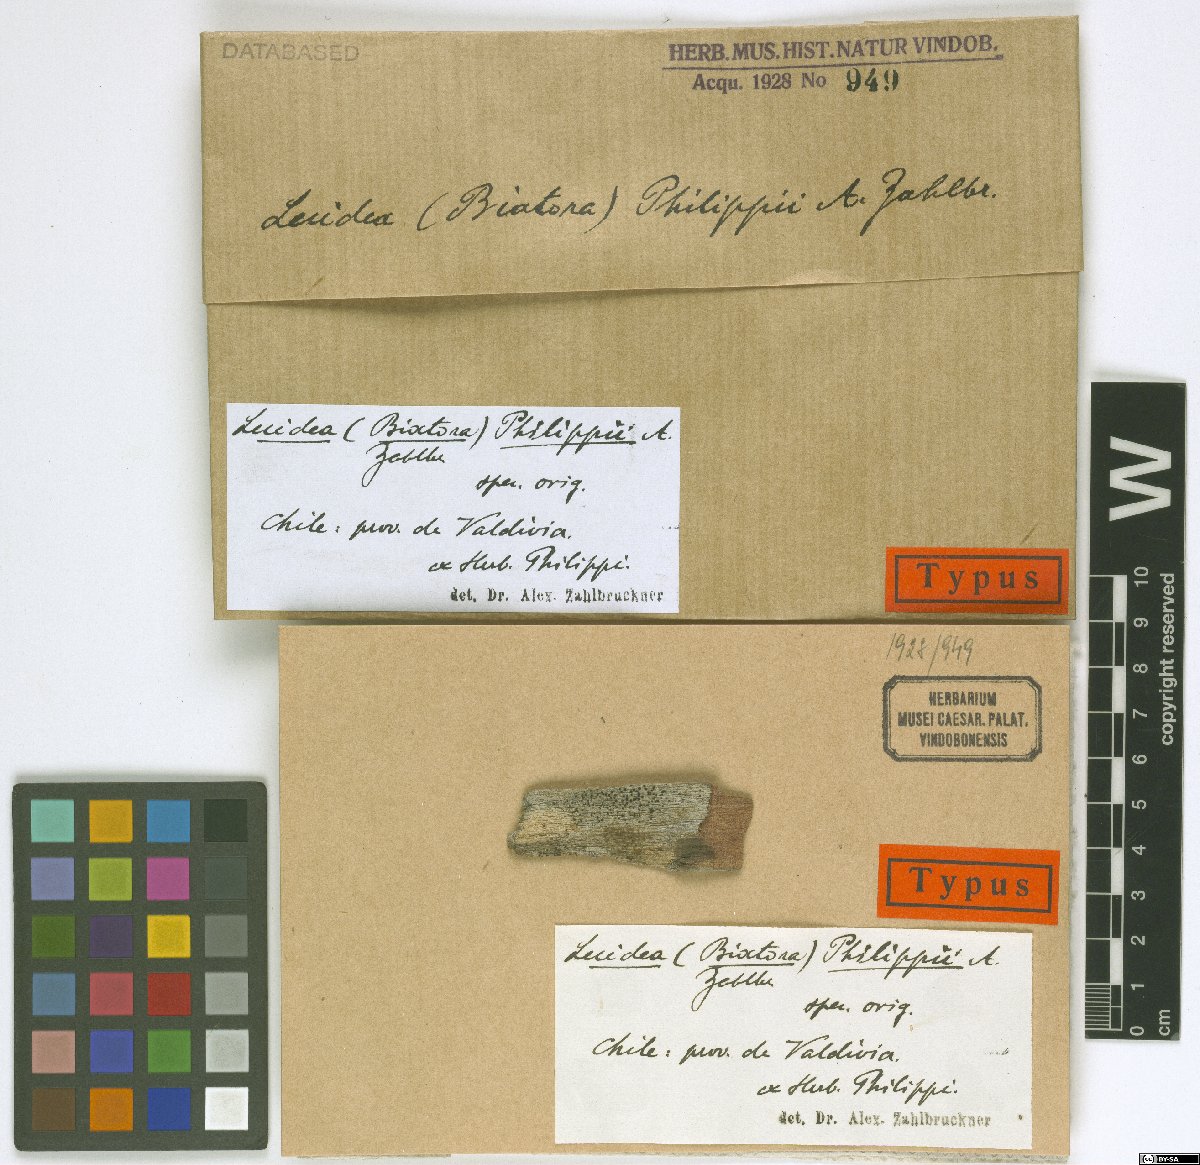 DATABASED
HERB. MUS. HIST. NATUR VINDOB.
Acqu. 1928 No 949
Lecidea (Biatora) Philippii A. Zahlbr.
Lecidea (Biatora) Philippii A.
Zahlbr
spec. orig.
Chile: prov. de Valdivia.
ex Herb. Philippi.
det. Dr. Alex. Zahlbruckner
Typus
1928/949
HERBARIUM
MUSEI CAESAR. PALAT.
VINDOBONENSIS
Typus
Lecidea (Biatora) Philippii A.
Zahlbr
spec. orig.
Chile: prov. de Valdivia.
ex Herb. Philippi.
det. Dr. Alex. Zahlbruckner
W
10
9
8
7
6
5
4
3
2
1
0
cm
copyright reserved
CC BY-SA